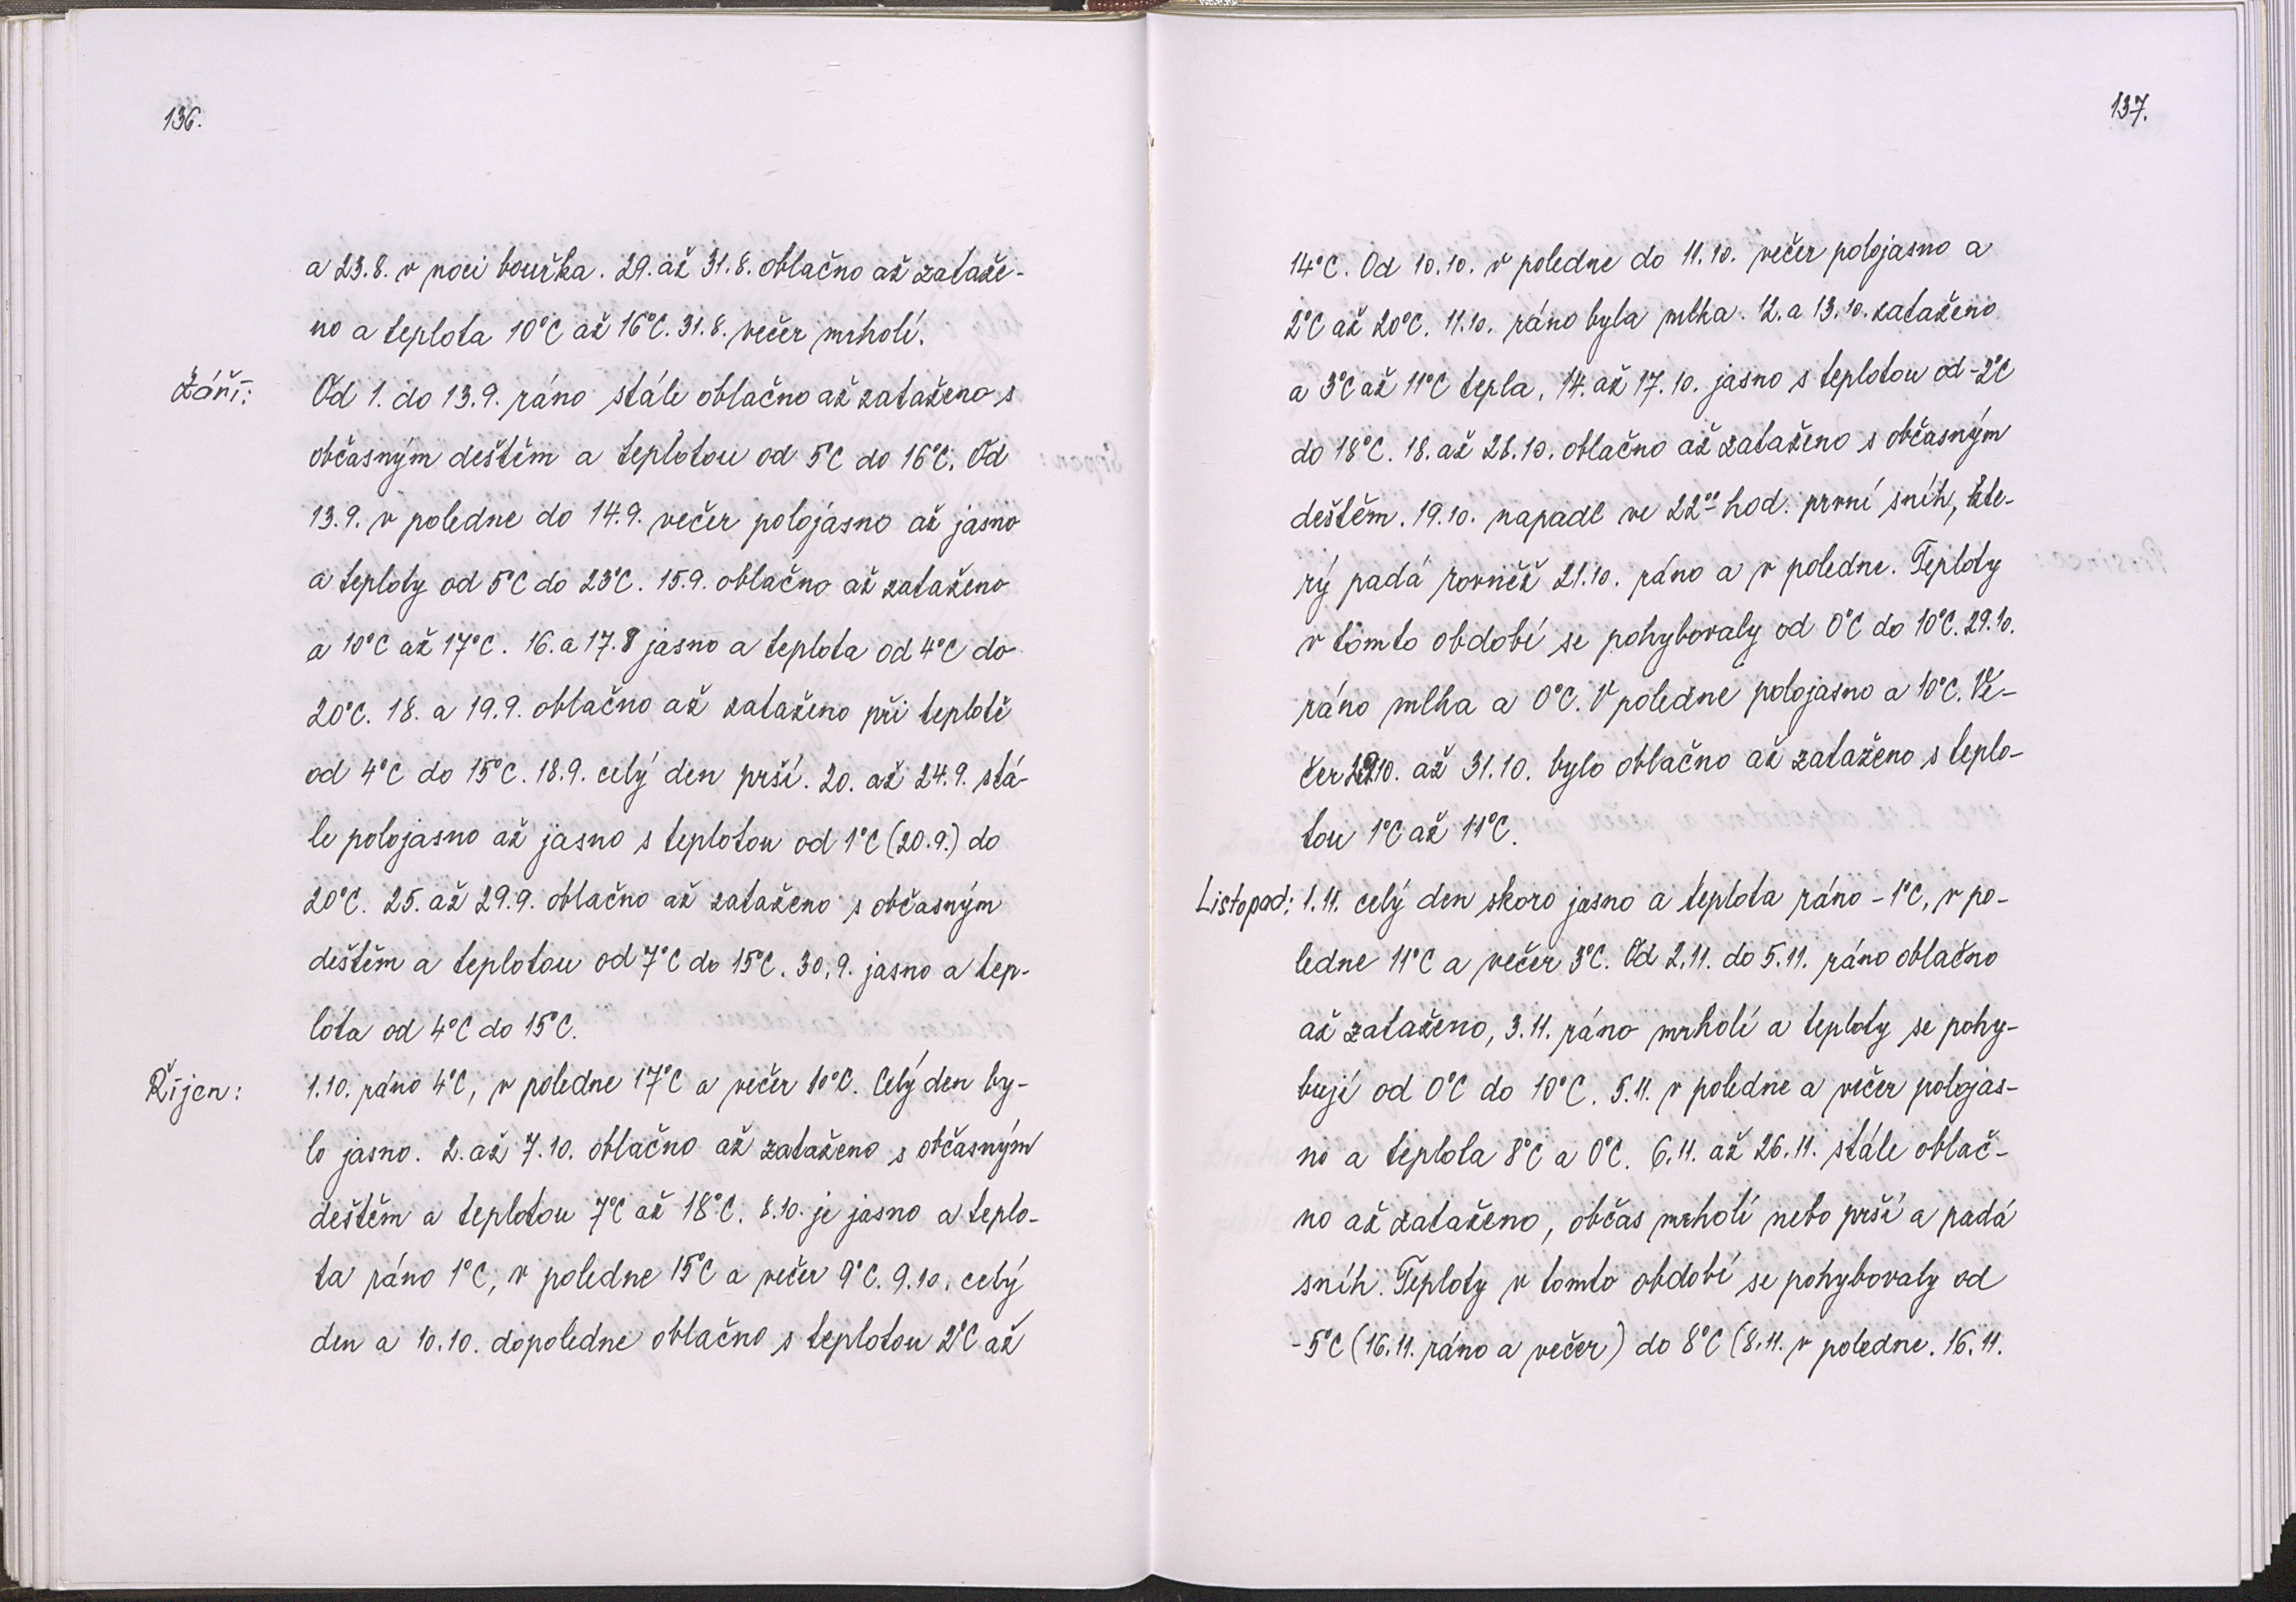 136.
a 23.8. v noci bouřka. 29. až 31.8. oblačno až zataže-
no a teplota 10°C až 16°C. 31.8. večer mrholí.
Září: Od 1. do 13.9. ráno stále oblačno až zataženo s
občasným deštěm a teplotou od 5°C do 16°C. Od
13.9. v poledne do 14.9. večer polojasno až jasno
a teploty od 5°C do 23°C. 15.9. oblačno až zataženo
a 10°C až 17°C. 16. a 17.8 jasno a teplota od 4°C do
20°C. 18. a 19.9. oblačno až zataženo při teplotě
od 4°C do 15°C. 18.9. celý den prší. 20. až 24.9. stá-
le polojasno až jasno s teplotou od 1°C (20.9.) do
20°C. 25. až 29.9. oblačno až zataženo s občasným
deštěm a teplotou od 7°C do 15°C. 30.9. jasno a tep-
lota od 4°C do 15°C.
Říjen: 1.10. ráno 4°C, v poledne 17°C a večer 10°C. Celý den by-
lo jasno. 2. až 7.10. oblačno až zataženo s občasným
deštěm a teplotou 7°C až 18°C. 8.10. je jasno a teplo-
ta ráno 1°C, v poledne 15°C a večer 9°C. 9.10. celý
den a 10.10. dopoledne oblačno s teplotou 2°C až
137.
14°C. Od 10.10. v poledne do 11.10. večer polojasno a
2°C až 20°C. 11.10. ráno byla mlha. 12. a 13.10. zataženo
a 3°C až 11°C tepla. 14. až 17.10. jasno s teplotou od -2°C
do 18°C. 18. až 28.10. oblačno až zataženo s občasným
deštěm. 19.10. napadl ve 22⁰⁰ hod. první sníh, kte-
rý padá rovněž 21.10. ráno a v poledne. Teploty
v tomto období se pohybovaly od 0°C do 10°C. 29.10.
ráno mlha a 0°C. V poledne polojasno a 10°C. Ve-
čer 29.10. až 31.10. bylo oblačno až zataženo s teplo-
tou 1°C až 11°C.
Listopad: 1.11. celý den skoro jasno a teplota ráno -1°C, v po-
ledne 11°C a večer 3°C. Od 2.11. do 5.11. ráno oblačno
až zataženo, 3.11. ráno mrholí a teploty se pohy-
bují od 0°C do 10°C. 5.11. v poledne a večer polojas-
no a teplota 8°C a 0°C. 6.11. až 26.11. stále oblač-
no až zataženo, občas mrholí nebo prší a padá
sníh. Teploty v tomto období se pohybovaly od
-5°C (16.11. ráno a večer) do 8°C (8.11. v poledne. 16.11.